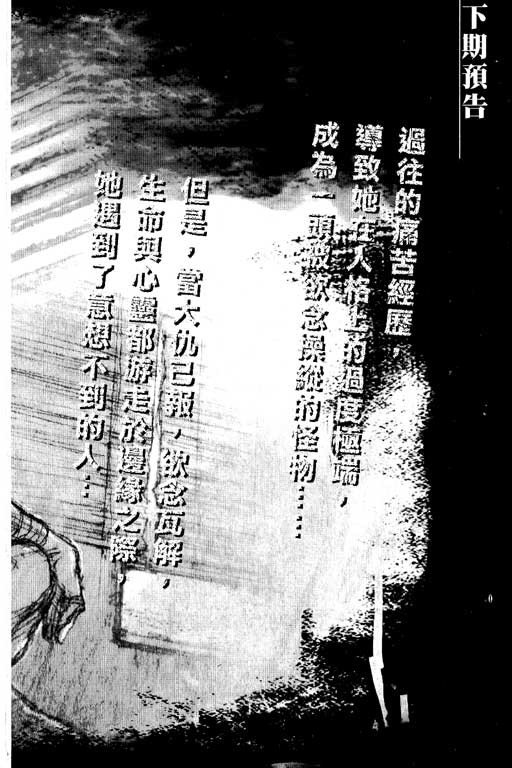 下期預告
過往的痛苦經歷，
導致她在人格上的過度極端，
成為一頭被欲念操縱的怪物……
但是，當大仇已報，欲念瓦解，
生命與心靈都游走於邊緣之際，
她遇到了意想不到的人…